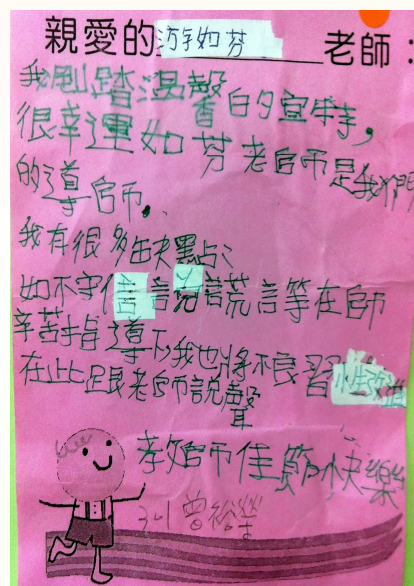 親愛的游如芬老師：
我剛踏溫馨的
很幸運如芬老師是我們
的導師。
我有很多缺點、
如不守信說謊言等在師
辛苦指導下,我也將不良習
在此跟老師說聲
教師佳節快樂
曾裕